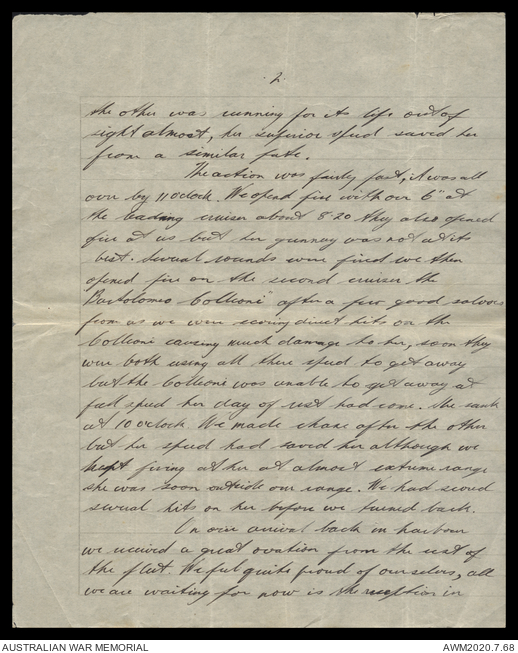 . 2.
the other was running for its life out of
sight almost, her superior speed saved her
from a similar fate.
The action was fairly fast, it was all
over by 11 oclock. We opened fire with our 6" at
the leading cruiser about 8.20 they also opened
fire at us but her gunnery was not at its
best. Several rounds were fired we then
opened fire on the second cruiser the
Bartolomeo Colleoni after a few good salvoes
from us we were scoring direct hits on the
Colleoni causing much damage to her, soon they
were both using all there speed to get away
but the Colleoni was unable to get away at
full speed her day of rest had come. She sank
at 10 oclock We made chase after the other
but her speed had saved her although we
kept firing at her at almost extreme range
she was soon outside our range. We had scored
several hits on her before we turned back.
On our arrival back in harbour
we received a great ovation from the rest of
the fleet. We felt quite proud of ourselves, all
we are waiting for now is the reception in
AUSTRALIAN WAR MEMORIAL
AWM2020.7.68